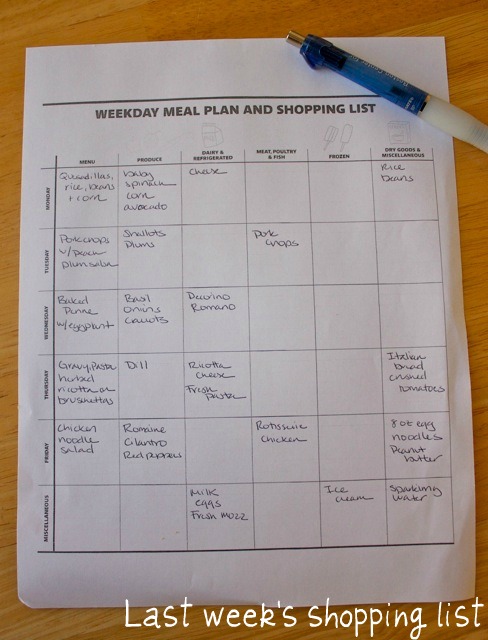 WEEKDAY MEAL PLAN AND SHOPPING LIST
MENU
PRODUCE
DAIRY &
REFRIGERATED
MEAT, POULTRY
& FISH
FROZEN
DRY GOODS &
MISCELLANEOUS
MONDAY
Quesadillas,
rice, beans
+ corn
baby
spinach
corn
avocado
cheese
Rice
beans
TUESDAY
Porkchops
w/ peach
plum salsa
Shallots
Plums
Pork
chops
WEDNESDAY
Baked
Penne
w/ eggplant
Basil
Onions
carrots
Pecorino
Romano
THURSDAY
Gravy, pasta
herbed
ricotta on
bruschettas
Dill
Ricotta
cheese
Fresh
pasta
Italian
bread
crushed
tomatoes
FRIDAY
Chicken
noodle
salad
Romaine
Cilantro
Red peppers
Rotisserie
chicken
8 oz egg
noodles
Peanut
butter
MISCELLANEOUS
Milk
eggs
Fresh mozz
Ice
cream
Sparkling
water
Last week's shopping list